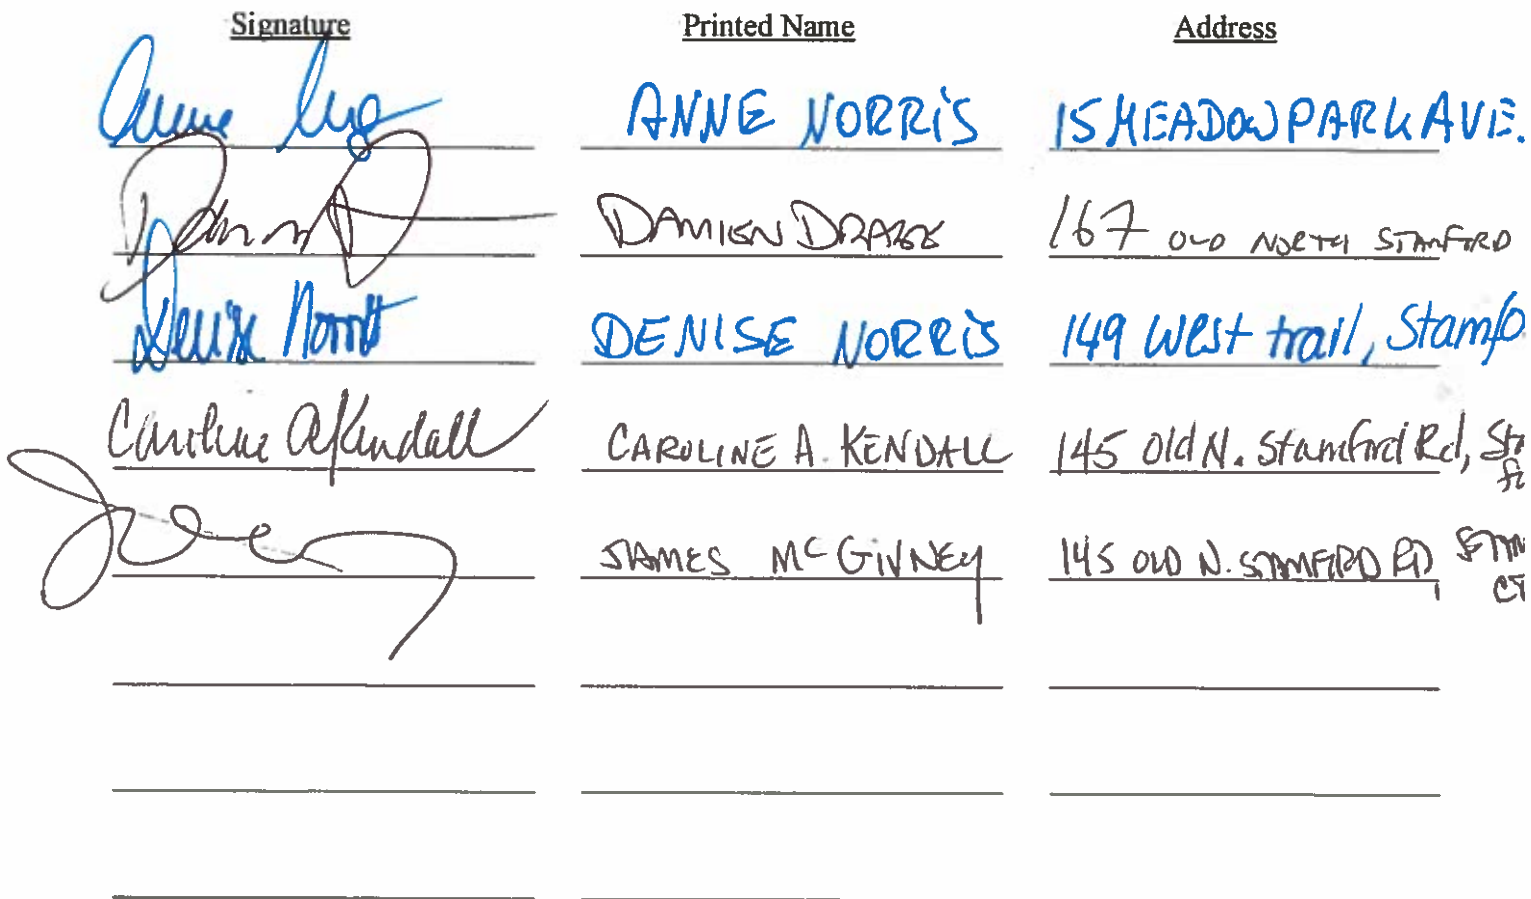 Signature Printed Name Address
Anne ANNE NORRIS 15 MEADOW PARK AVE.
DAMIEN 167 OLD NORTH STAMFORD
Denise Norris DENISE NORRIS 149 West trail, Stamfo
Caroline A Kendall CAROLINE A. KENDALL 145 Old N. Stamford Rd, Sta
JAMES McGIVNEY 145 OLD N. STAMFORD RD, STAM
CT